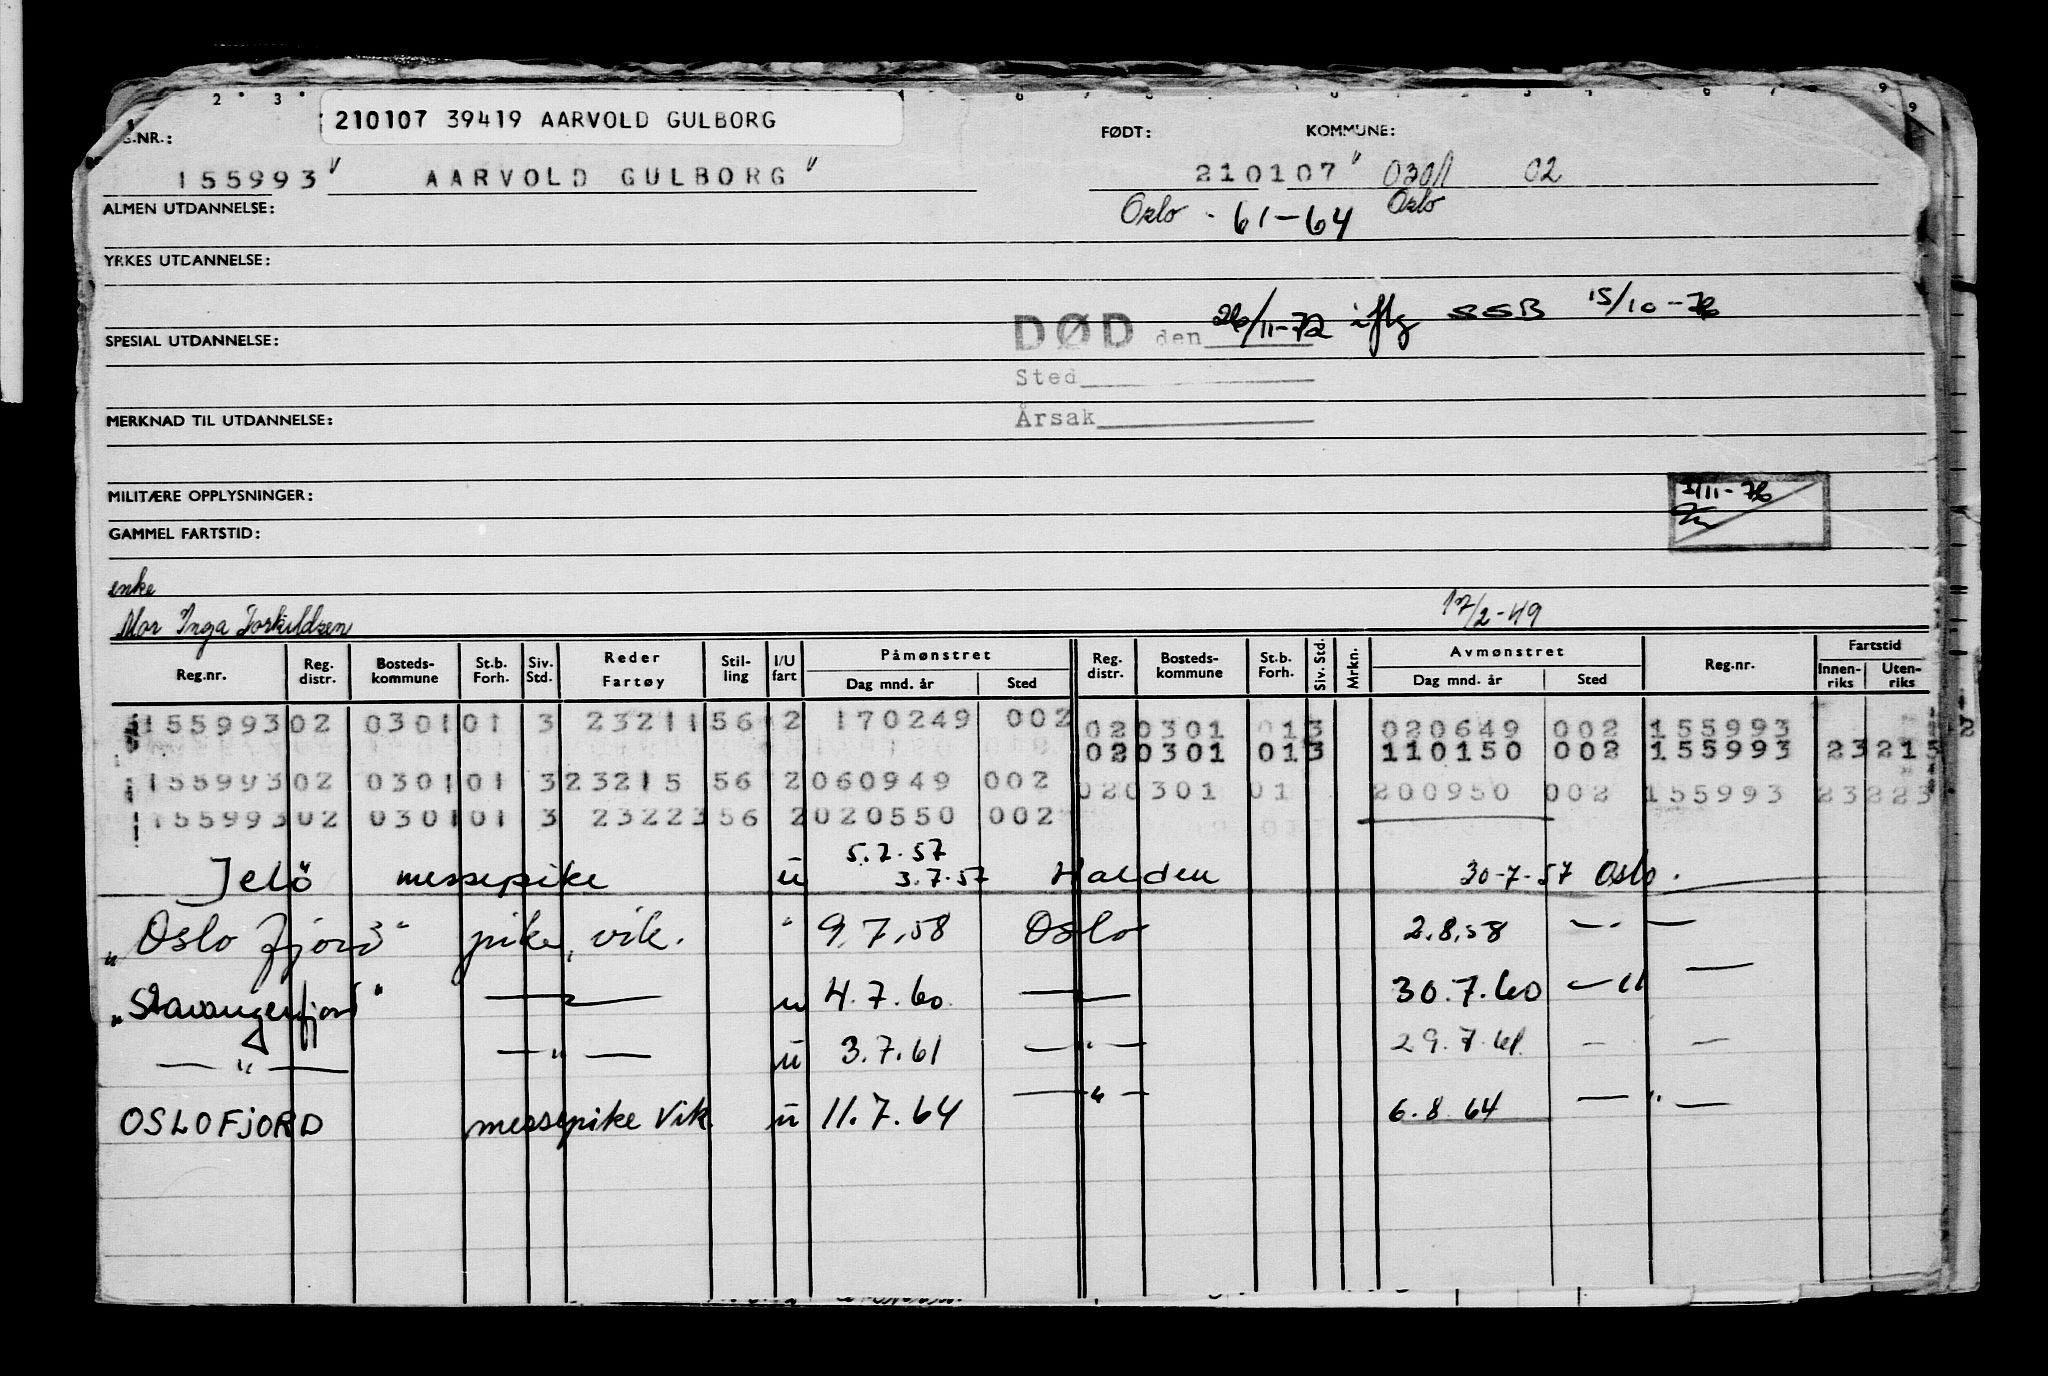 210107 39419 AARVOLD GULBORG
G.NR.: FØDT: KOMMUNE:
155993 " AARVOLD GULBORG " 210107 " 0301 02
ALMEN UTDANNELSE: Oslo · 61-64 Oslo
YRKES UTDANNELSE:
DØD den 26/11-72 iflg SSB 15/10-76
SPESIAL UTDANNELSE:
Sted
MERKNAD TIL UTDANNELSE: Årsak
MILITÆRE OPPLYSNINGER: 1/11-76
GAMMEL FARTSTID:
enke
Mor Inga Torkildsen 17/2-49
Reg.nr. Reg. distr. Bosteds- kommune St.b. Forh. Siv. Std. Reder Fartøy Stil- ling I/U fart Påmønstret Dag mnd. år Sted Reg. distr. Bosteds- kommune St.b. Forh. Siv. Std. Mrkn. Avmønstret Dag mnd. år Sted Reg.nr. Fartstid Innen- riks Uten- riks
155993 02 0301 01 3 23211 56 2 170249 002 02 0301 01 3 020649 002 155993
02 0301 01 3 110150 002 155993 23215
155993 02 0301 01 3 23215 56 2 060949 002 02 0301 01 200950 002 155993 23223
155993 02 0301 01 3 23223 56 2 020550 002
5.7.57
Jelö messepike u 3.7.57 Halden 30-7-57 Oslo.
"Oslofjord" pike, vik. " 9.7.58 Oslo 2.8.58 — —
"Stavangerfjord" — — u 4.7.60 — — 30.7.60 — " —
— " — — " — u 3.7.61 — " — 29.7.61 — —
OSLOFJORD messepike Vik. u 11.7.64 — " — 6.8.64 — " —